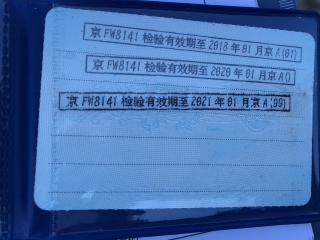 京FW8141 检验有效期至2018年01月京A(01)
京FW8141 检验有效期至2020年01月京A()
京FW8141 检验有效期至2021年01月京A(99)